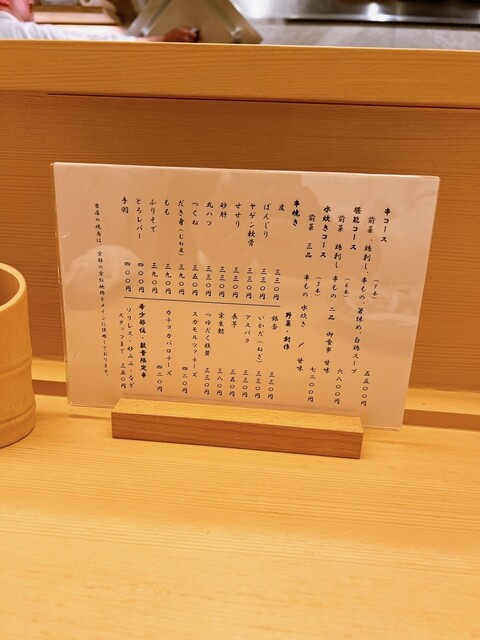 串コース
前菜、鶏刺し、串もの、箸休め、白鶏スープ
(7本) 五五〇〇円
堪能コース
前菜 鶏刺し 串もの 二品 御食事 甘味
(6本) 六八〇〇円
水炊きコース
前菜 三品 串もの 水炊き 〆 甘味
(3本) 七二〇〇円
串焼き
皮 三三〇円
ぼんじり 三三〇円
ヤゲン軟骨 三三〇円
せせり 三三〇円
砂肝 三三〇円
丸ハツ 三三〇円
つくね 三五〇円
だき身(むね重) 三九〇円
もも 三九〇円
ふりそで 三九〇円
とろレバー 四〇〇円
手羽 四〇〇円
野菜・創作
銀杏 三三〇円
いかだ(ねぎ) 三三〇円
アスパラ 三三〇円
長芋 三五〇円
京生麩 三八〇円
つゆだく椎茸 三八〇円
スカモルツァチーズ
四二〇円
カチョカバロチーズ
四二〇円
希少部位・数量限定串
ソリレス・ 、など
スタッフまで 三五〇円
当店の焼鳥は、京都の京紅地鶏をメインに使用しております。